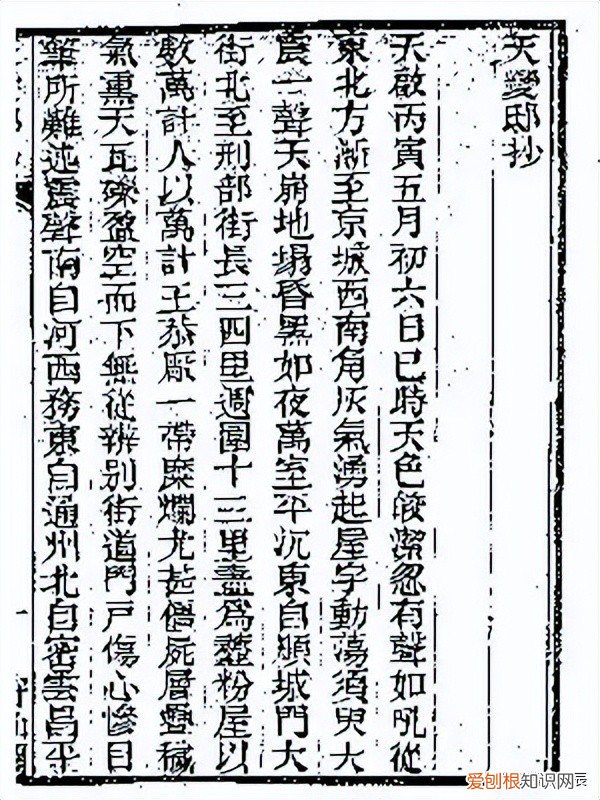 天變邸抄
天啟丙寅五月初六日巳時天色皎潔忽有聲如吼從
東北方漸至京城西南角灰氣湧起屋宇動蕩須臾大
震一聲天崩地塌昏黑如夜萬室平沉東自順城門大
街北至刑部街長三四里週圍十三里盡為齏粉屋以
數萬計人以萬計王恭廠一帶糜爛尤甚僵屍層疊穢
氣熏天瓦礫盈空而下無從辨別街道門戶傷心慘目
筆所難述震聲南自河西務東自通州北自密雲昌平
爱刨根知识网